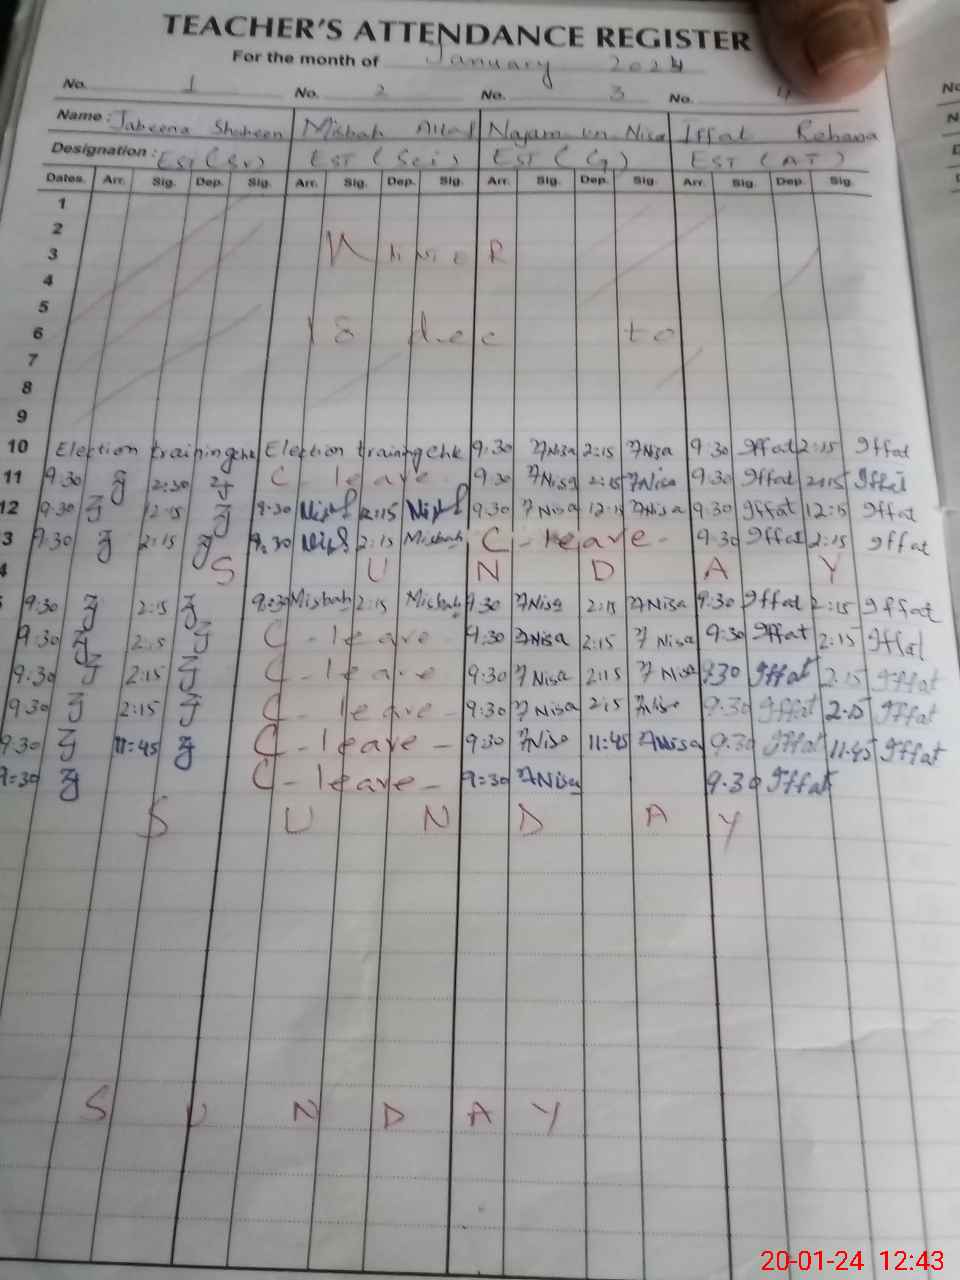 TEACHER'S ATTENDANCE REGISTER
For the month of January 2024
No. 1 No. 2 No. 3 No. 4
Name: Jabeena Shaheen Misbah Najam un Nisa Iffat Rehana
Designation: EST (Sr) EST (Sci) EST (G) EST (AT)
Dates. Arr. Sig. Dep. Sig. Arr. Sig. Dep. Sig. Arr. Sig. Dep. Sig. Arr. Sig. Dep. Sig.
1
2
3
4
5
6 18 dec to
7
8
9
10 Election training chk Election training chk 9:30 7Nisa 2:15 7Nisa 9:30 Iffat 2:15 Iffat
11 9:30 2:30 C-leave 9:30 7Nisa 2:15 7Nisa 9:30 Iffat 2:15 Iffat
12 9:30 12:15 9:30 12:15 9:30 7Nisa 12:15 7Nisa 9:30 Iffat 12:15 Iffat
3 9:30 2:15 9:30 2:15 Misbah C-leave- 9:30 Iffat 2:15 Iffat
4 S U N D A Y
9:30 2:15 9:30 Misbah 2:15 Misbah 9:30 7Nisa 2:15 7Nisa 9:30 Iffat 2:15 Iffat
9:30 2:15 C-leave 9:30 7Nisa 2:15 7Nisa 9:30 Iffat 2:15 Iffat
9:30 2:15 C-leave 9:30 7Nisa 2:15 7Nisa 9:30 Iffat 2:15 Iffat
9:30 2:15 C-leave- 9:30 7Nisa 2:15 7Nisa 9:30 Iffat 2:15 Iffat
9:30 11:45 C-leave- 9:30 7Nisa 11:45 7Nissa 9:30 Iffat 11:45 Iffat
9:30 C-leave- 9:30 7Nisa 9:30 Iffat
S U N D A Y
S U N D A Y
20-01-24 12:43